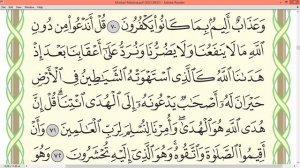 وَعَذَابٌ أَلِيمٌ بِمَا كَانُوا۟ يَكْفُرُونَ ٧٠ قُلْ أَنَدْعُوا۟ مِن دُونِ
ٱللَّهِ مَا لَا يَنفَعُنَا وَلَا يَضُرُّنَا وَنُرَدُّ عَلَىٰٓ أَعْقَابِنَا بَعْدَ إِذْ
هَدَىٰنَا ٱللَّهُ كَٱلَّذِى ٱسْتَهْوَتْهُ ٱلشَّيَـٰطِينُ فِى ٱلْأَرْضِ
حَيْرَانَ لَهُۥٓ أَصْحَـٰبٌ يَدْعُونَهُۥٓ إِلَى ٱلْهُدَى ٱئْتِنَا ۗ قُلْ إِنَّ
هُدَى ٱللَّهِ هُوَ ٱلْهُدَىٰ ۖ وَأُمِرْنَا لِنُسْلِمَ لِرَبِّ ٱلْعَـٰلَمِينَ ٧١ وَأَنْ
أَقِيمُوا۟ ٱلصَّلَوٰةَ وَٱتَّقُوهُ ۚ وَهُوَ ٱلَّذِىٓ إِلَيْهِ تُحْشَرُونَ ٧٢ وَهُوَ